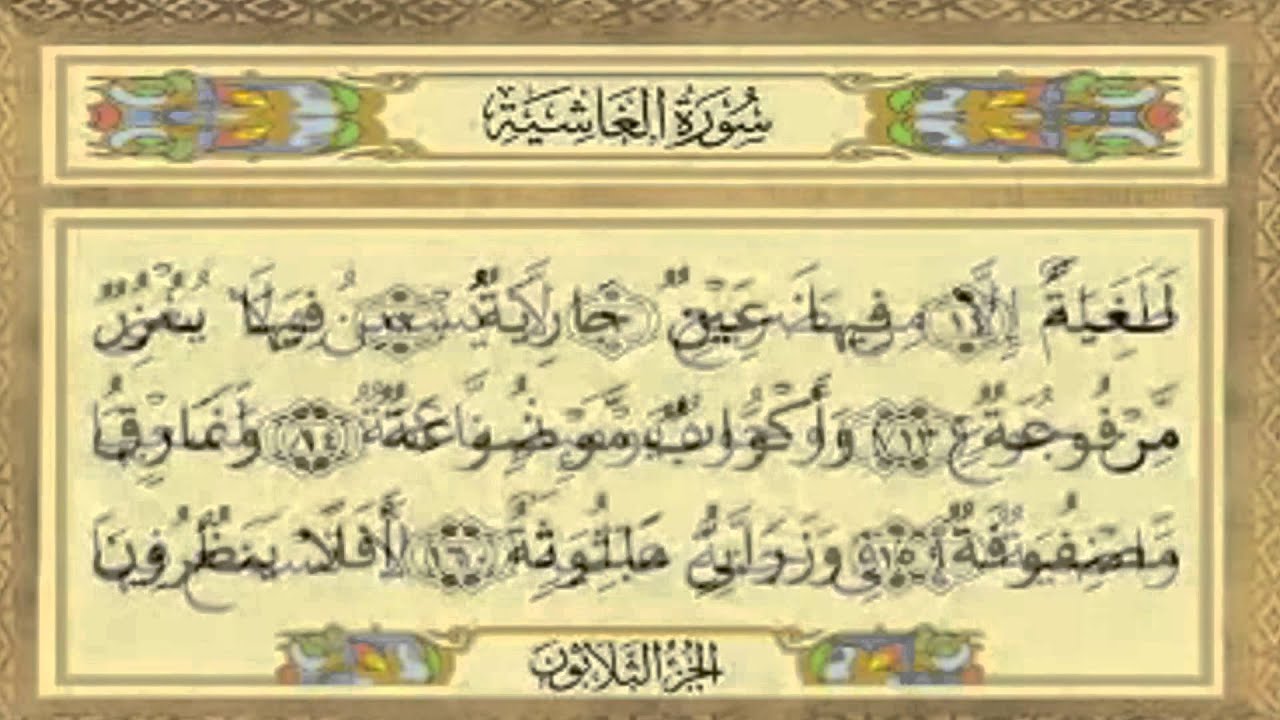 سُورَةُ الْغَاشِيَةِ
فِيهَا عَيْنٌ جَارِيَةٌ فِيهَا
مَّرْفُوعَةٌ ١٣ وَأَكْوَابٌ مَّوْضُوعَةٌ ١٤ وَنَمَارِقُ
مَصْفُوفَةٌ ١٥ وَزَرَابِيُّ مَبْثُوثَةٌ ١٦ أَفَلَا يَنظُرُونَ
الجُزْءُ الثَّلَاثُونَ